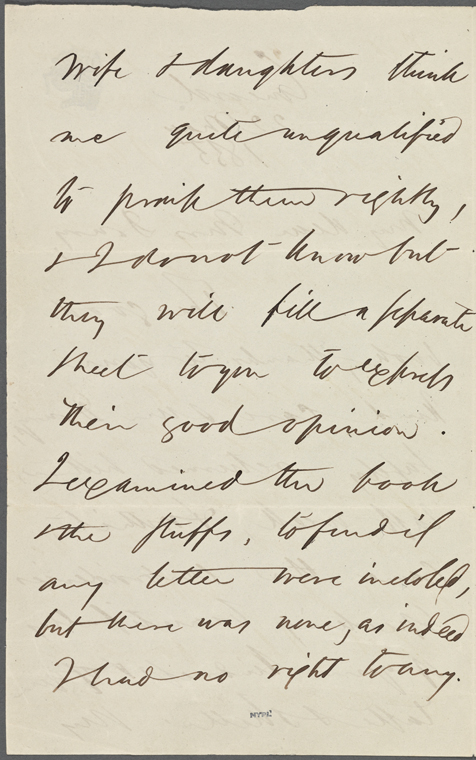 wife & daughters think
me quite unqualified
to praise them rightly,
& I do not know but
they will fill a separate
sheet to you to express
their good opinion.
I examined the book
& the stuffs, to find if
any letter were inclosed,
but there was none, as indeed
I had no right to any.
NYPL